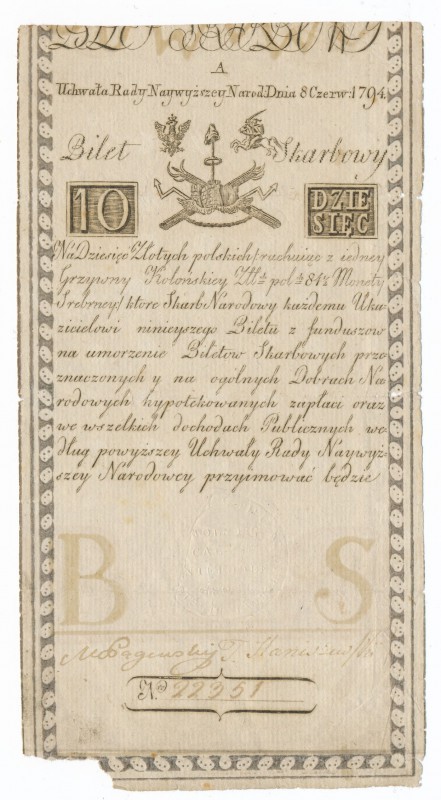 A
Uchwała Rady Naywyższey Narod: Dnia 8 Czerw: 1794.
Bilet Skarbowy
10 DZIE
SIĘC
Na Dziesięc Złotych polskich / rachuiąc z iedney
Grzywny Kolońskiey Zł: pol: 84½ Monety
Srebrney / które Skarb Narodowy każdemu Uka-
zicielowi ninieyszego Biletu z funduszow
na umorzenie Biletow Skarbowych prze-
znaczonych y na ogólnych Dobrach Na-
rodowych hypotekowanych zapłaci oraz
we wszelkich dochodach Publicznych we-
dług powyższey Uchwały Rady Naywyż-
szey Narodowey przyimować będzie
B S
M Pągowski T. Staniszewski
No 22351